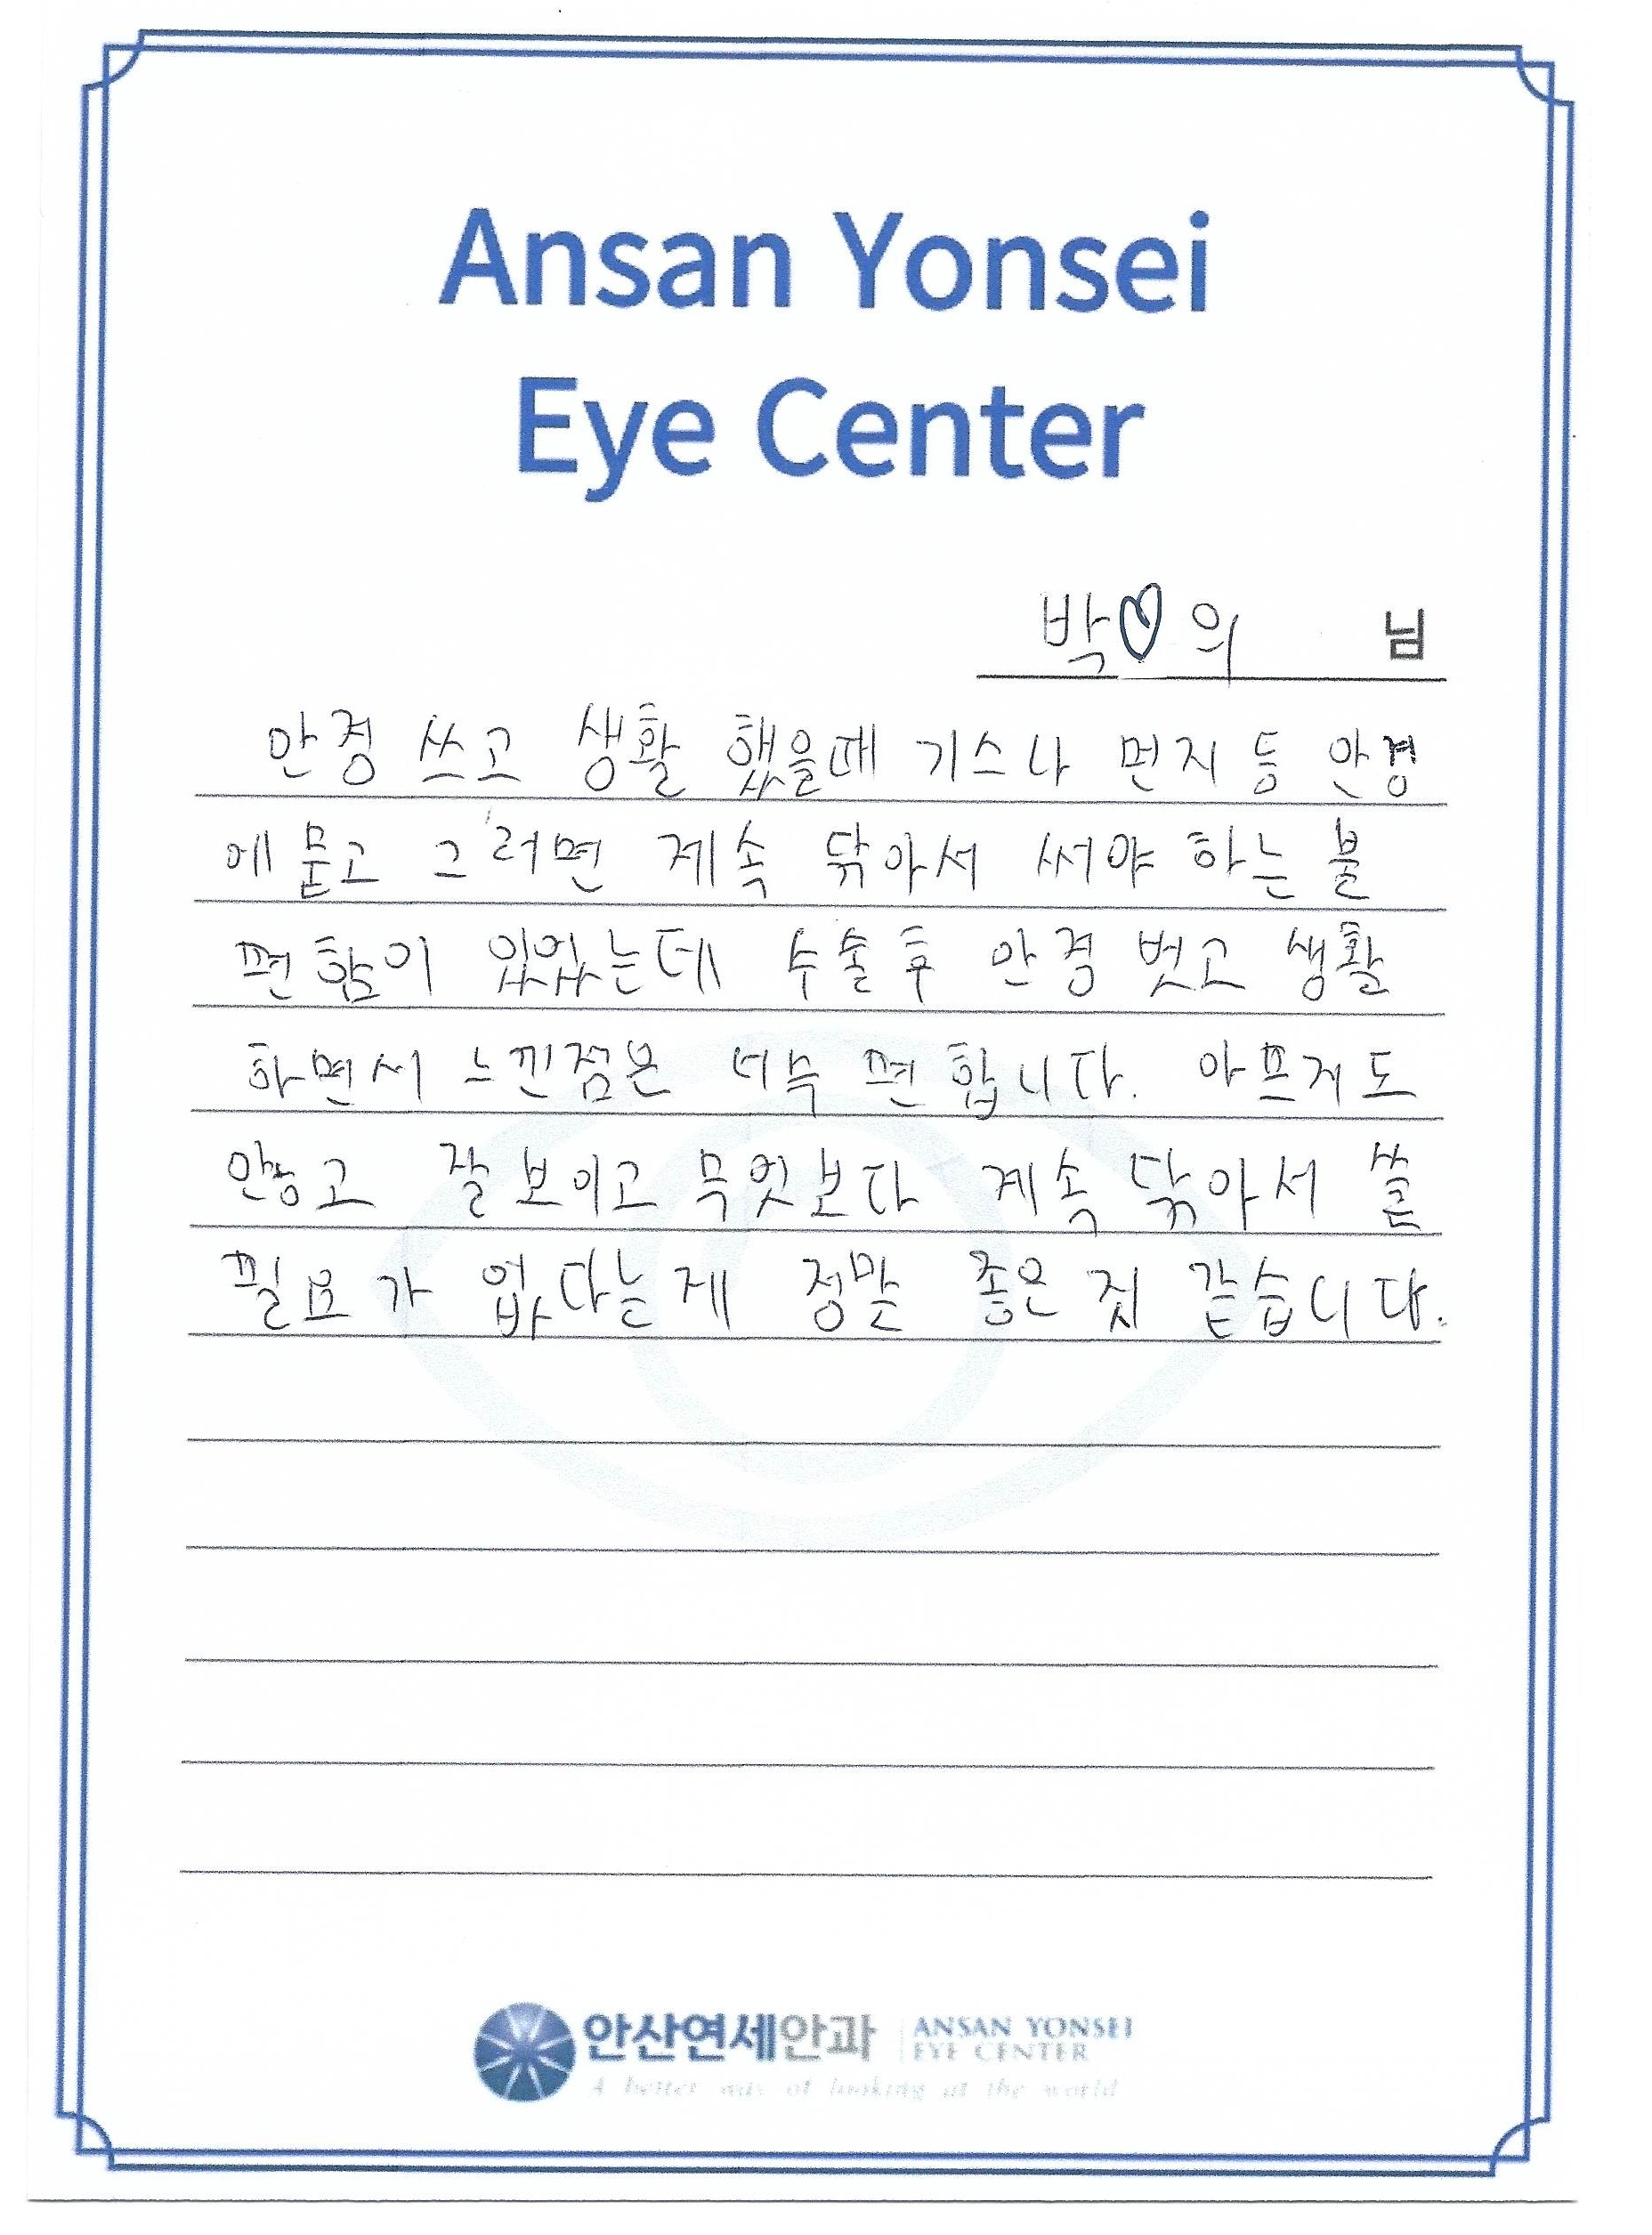 Ansan Yonsei
Eye Center
박♡의 님
안경 쓰고 생활 했을때 기스나 먼지 등 안경
에 묻고 그러면 계속 닦아서 써야 하는 불
편함이 있었는데 수술후 안경 벗고 생활
하면서 느낀점은 너무 편합니다. 아프지도
않고 잘 보이고 무엇보다 계속 닦아서 쓸
필요가 없다는게 정말 좋은 것 같습니다.
안산연세안과 ANSAN YONSEI
EYE CENTER
A better way of looking at the world